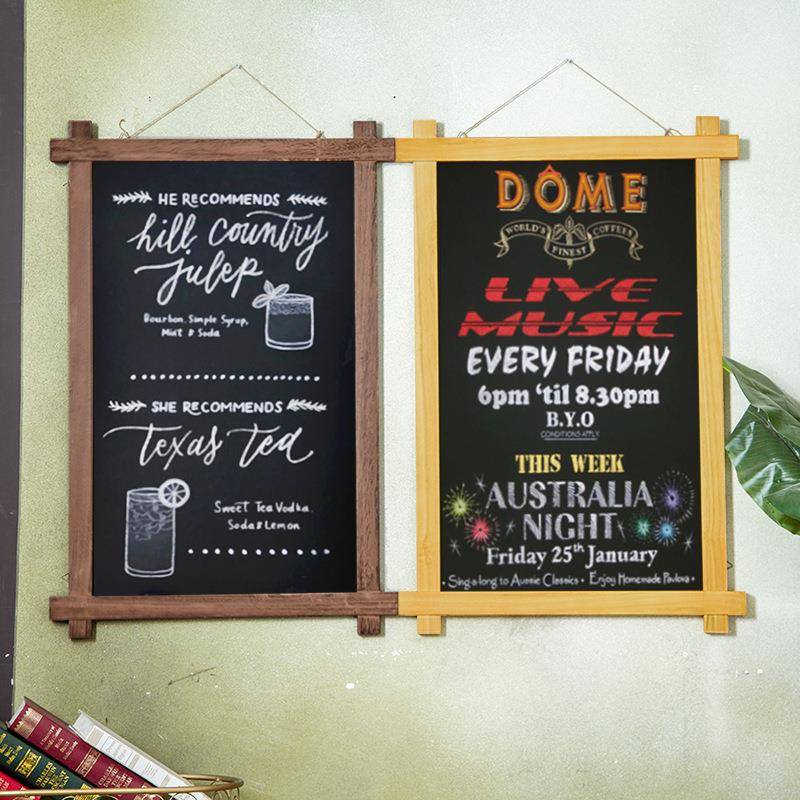 HE RECOMMENDS
hill country
julep
Bourbon. Simple Syrup,
Mint & Soda
SHE RECOMMENDS
texas tea
Sweet Tea Vodka.
Soda & Lemon
DÔME
WORLD'S FINEST COFFEES
LIVE
MUSIC
EVERY FRIDAY
6pm 'til 8.30pm
B.Y.O
CONDITIONS APPLY
THIS WEEK
AUSTRALIA
NIGHT
Friday 25th January
• Sing-a-long to Aussie Classics • Enjoy Homemade Pavlova •